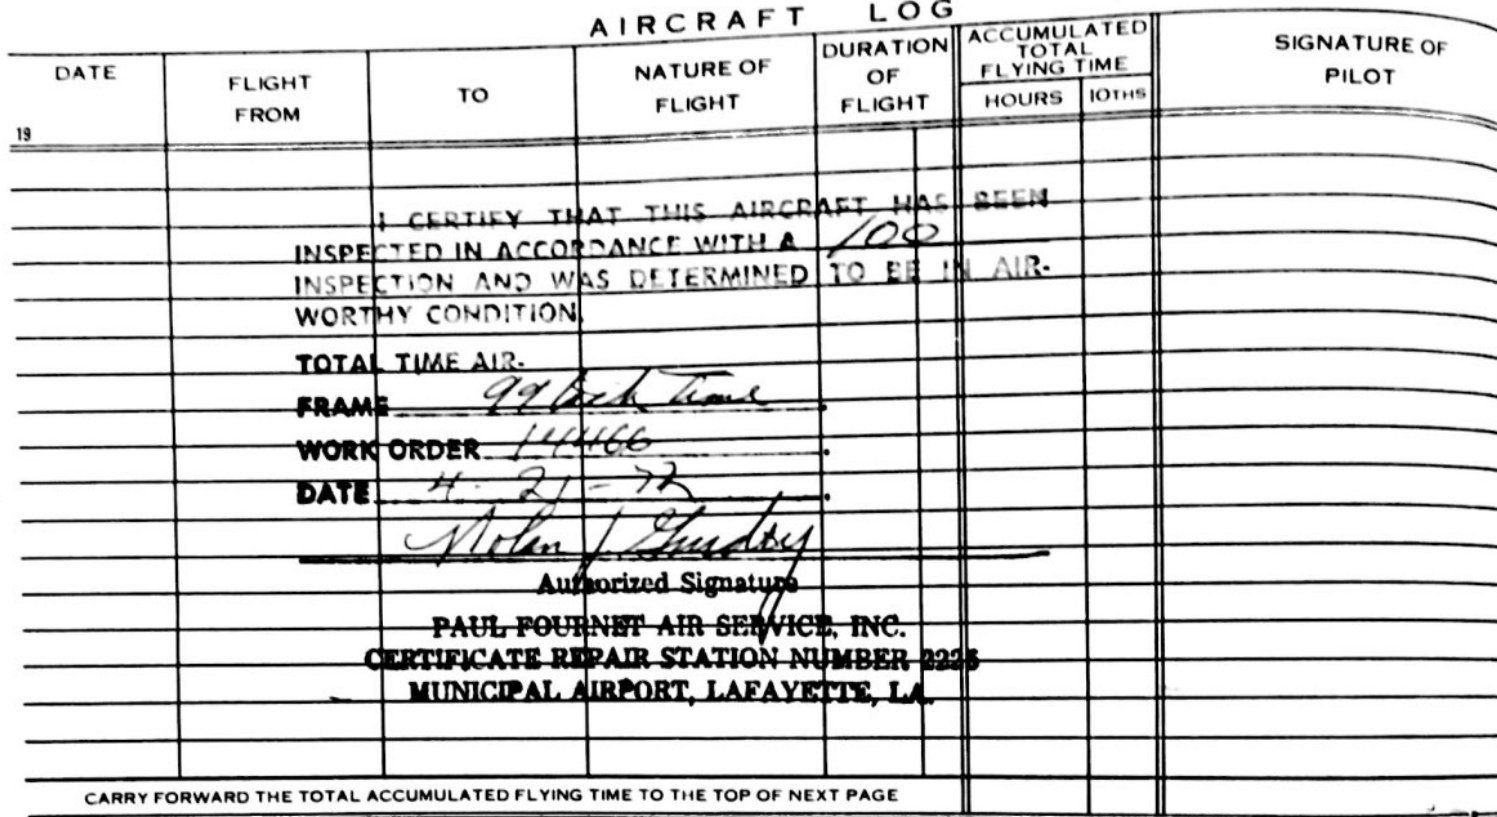 AIRCRAFT LOG
DATE
19
FLIGHT
FROM
TO
NATURE OF
FLIGHT
DURATION
OF
FLIGHT
ACCUMULATED
TOTAL
FLYING TIME
HOURS 10THS
SIGNATURE OF
PILOT
I CERTIFY THAT THIS AIRCRAFT HAS BEEN
INSPECTED IN ACCORDANCE WITH A 100
INSPECTION AND WAS DETERMINED TO BE IN AIR-
WORTHY CONDITION.
TOTAL TIME AIR-
FRAME 99 Tach Time.
WORK ORDER 14466.
DATE 4-21-72.
Nolan J.
Authorized Signature
PAUL FOURNET AIR SERVICE, INC.
CERTIFICATE REPAIR STATION NUMBER 2225
MUNICIPAL AIRPORT, LAFAYETTE, LA.
CARRY FORWARD THE TOTAL ACCUMULATED FLYING TIME TO THE TOP OF NEXT PAGE